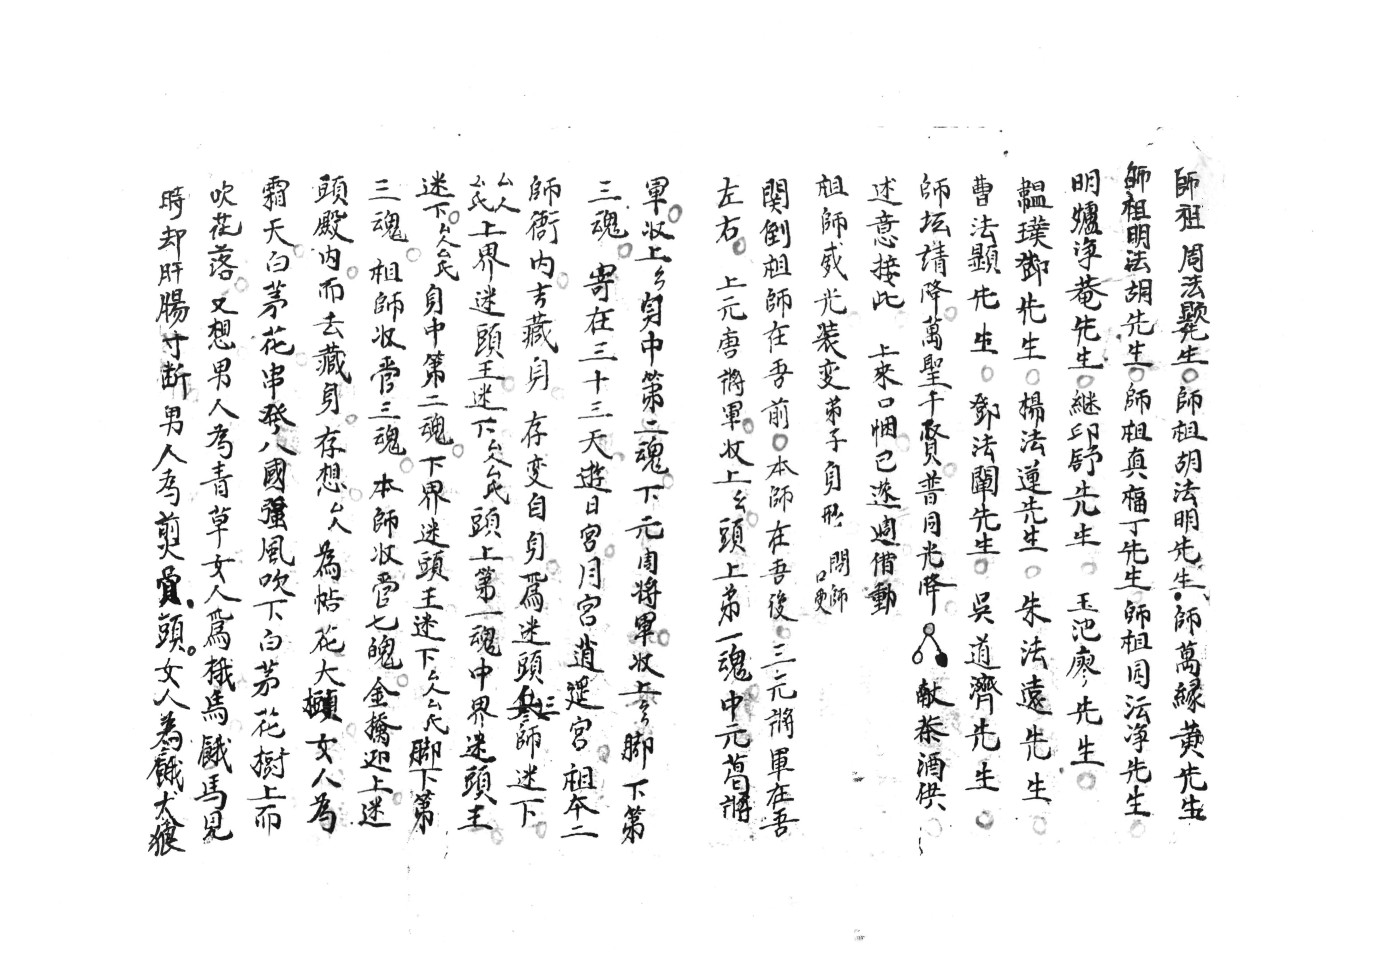 師祖周法顯先生○師祖胡法明先生○師萬緣黄先生
師祖明法胡先生○師祖真福丁先生○師祖周法淨先生
明爐淨菴先生○継印舒先生○玉池廖先生○
韞璞鄧先生○楊法蓮先生○朱法遠先生
曹法顯先生○鄧法闡先生○吳道濟先生○
師坛請降萬聖千賢普同光降 献茶酒供
述意接此 上來口悃已遂週借動
祖師威光裝变弟子身形 問師口㕰
関倒祖師在吾前○本師在吾後○三元將軍在吾
左右○上元唐將軍○收上厶頭上弟一魂中元葛將
軍收上厶身中第二魂下元周將軍收上厶脚下第
三魂 寄在三十三天遊日宮月宮逍遥宮 祖本二
師衙內去藏身 存変自身爲迷頭 師迷下
厶人厶氏上界迷頭王迷下厶人厶氏頭上第一魂中界迷頭王
迷下○厶人厶氏身中第二魂下界迷頭王迷下厶人厶氏脚下第
三魂 祖師收管三魂 本師收管七魄金橋迎上迷
頭殿內而去藏身○存想厶人為帖花大 女人為
霜天白茅花串發八國強風吹下白茅花樹上而
吹花落 又想男人為青草女人爲 馬餓馬見
時却肝腸寸断男人為煎 骨頭○女人為餓犬狼